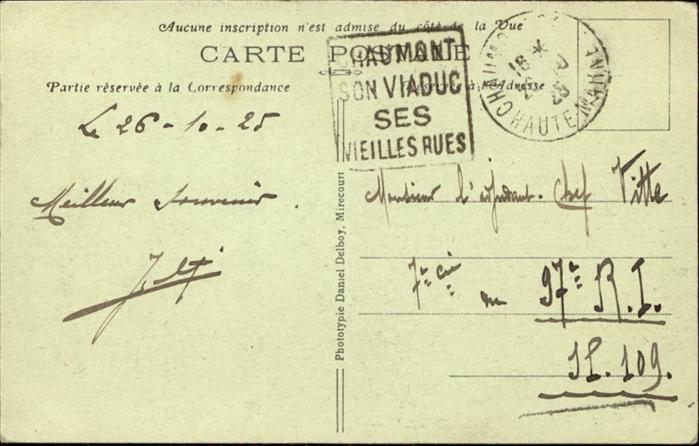 Aucune inscription n'est admise du côté de la Vue
CARTE POSTALE
Partie réservée à la Correspondance
à l'Adresse
CHAUMONT
SON VIADUC
SES
VIEILLES RUES
CHAUMONT
HAUTE MARNE
Le 26-10-25
Meilleur Souvenir.
Monsieur l'adjudant-Chef Vitte
7e Cie
au 97e R.I.
SP. 109.
Phototypie Daniel Delboy, Mirecourt